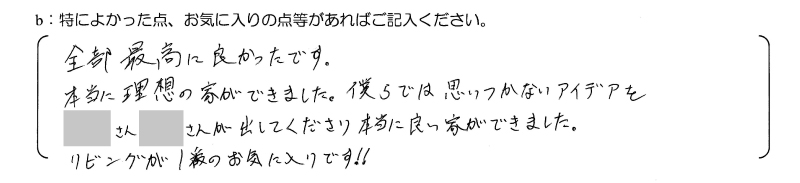 b：特によかった点、お気に入りの点等があればご記入ください。
全部最高に良かったです。
本当に理想の家ができました。僕らでは思いつかないアイデアを
さん さんが出してくださり本当に良い家ができました。
リビングが1番のお気に入りです!!